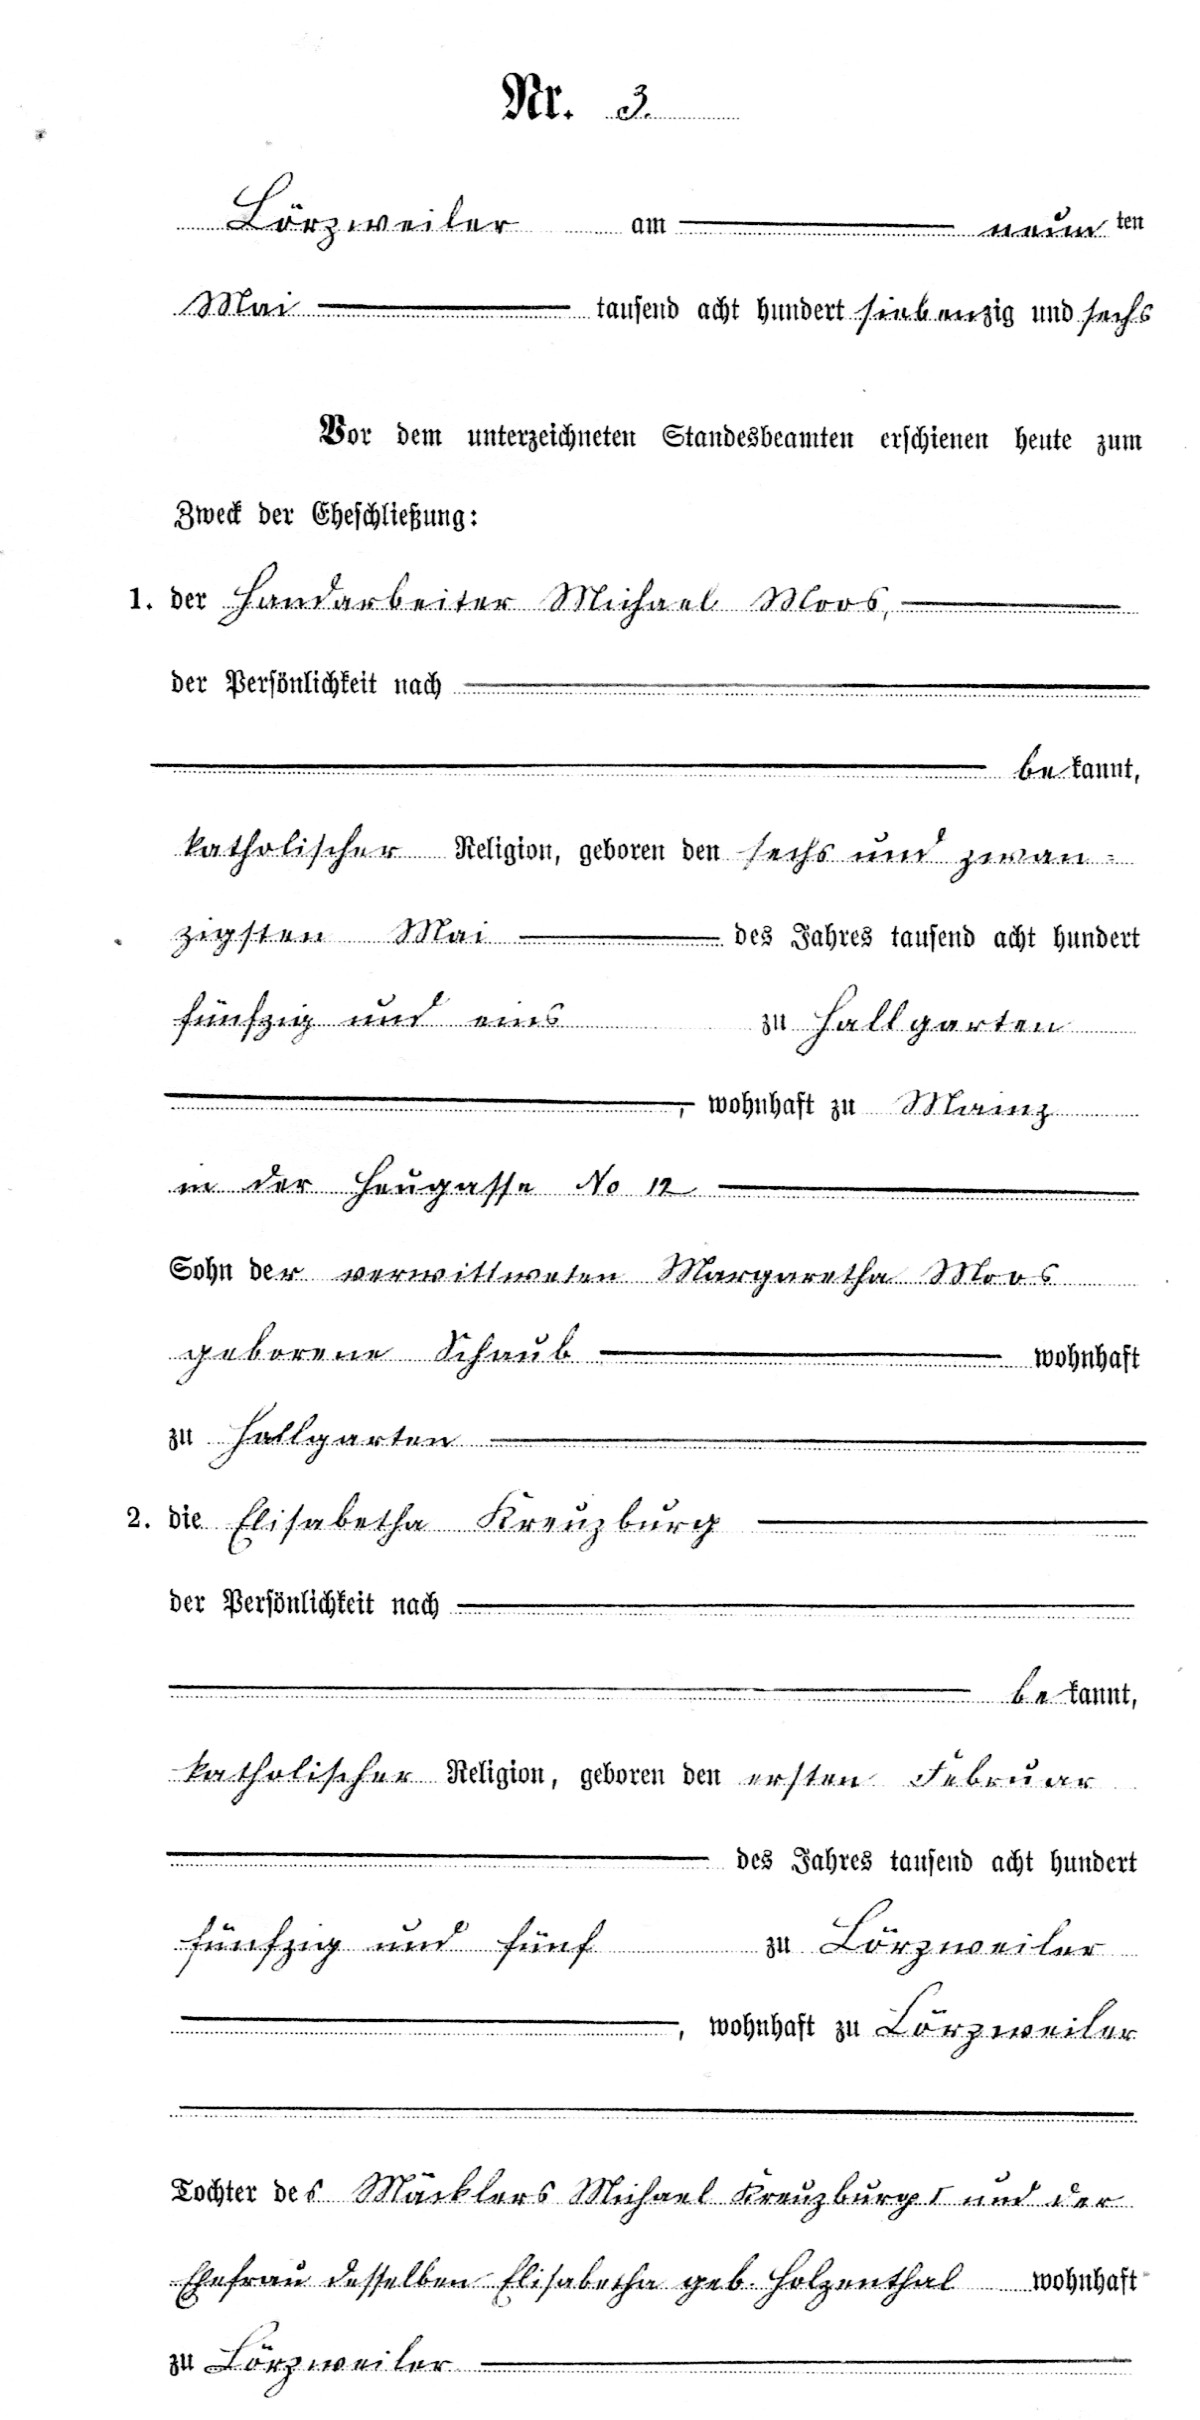 Nr. 3.
Lörzweiler am neunten
Mai tausend acht hundert siebenzig und sechs
Vor dem unterzeichneten Standesbeamten erschienen heute zum
Zweck der Eheschließung:
1. der Handarbeiter Michael Moos,
der Persönlichkeit nach
bekannt,
katholischer Religion, geboren den sechs und zwan-
zigsten Mai des Jahres tausend acht hundert
fünfzig und eins zu Hallgarten
, wohnhaft zu Mainz
in der Heugasse No 12
Sohn der verwittweten Margaretha Moos
geborene Schaub wohnhaft
zu Hallgarten
2. die Elisabetha Kreuzburg
der Persönlichkeit nach
bekannt,
katholischer Religion, geboren den ersten Februar
des Jahres tausend acht hundert
fünfzig und fünf zu Lörzweiler
, wohnhaft zu Lörzweiler
Tochter des Mäcklers Michael Kreuzburg I und der
Ehefrau desselben Elisabetha geb. Holzenthal wohnhaft
zu Lörzweiler